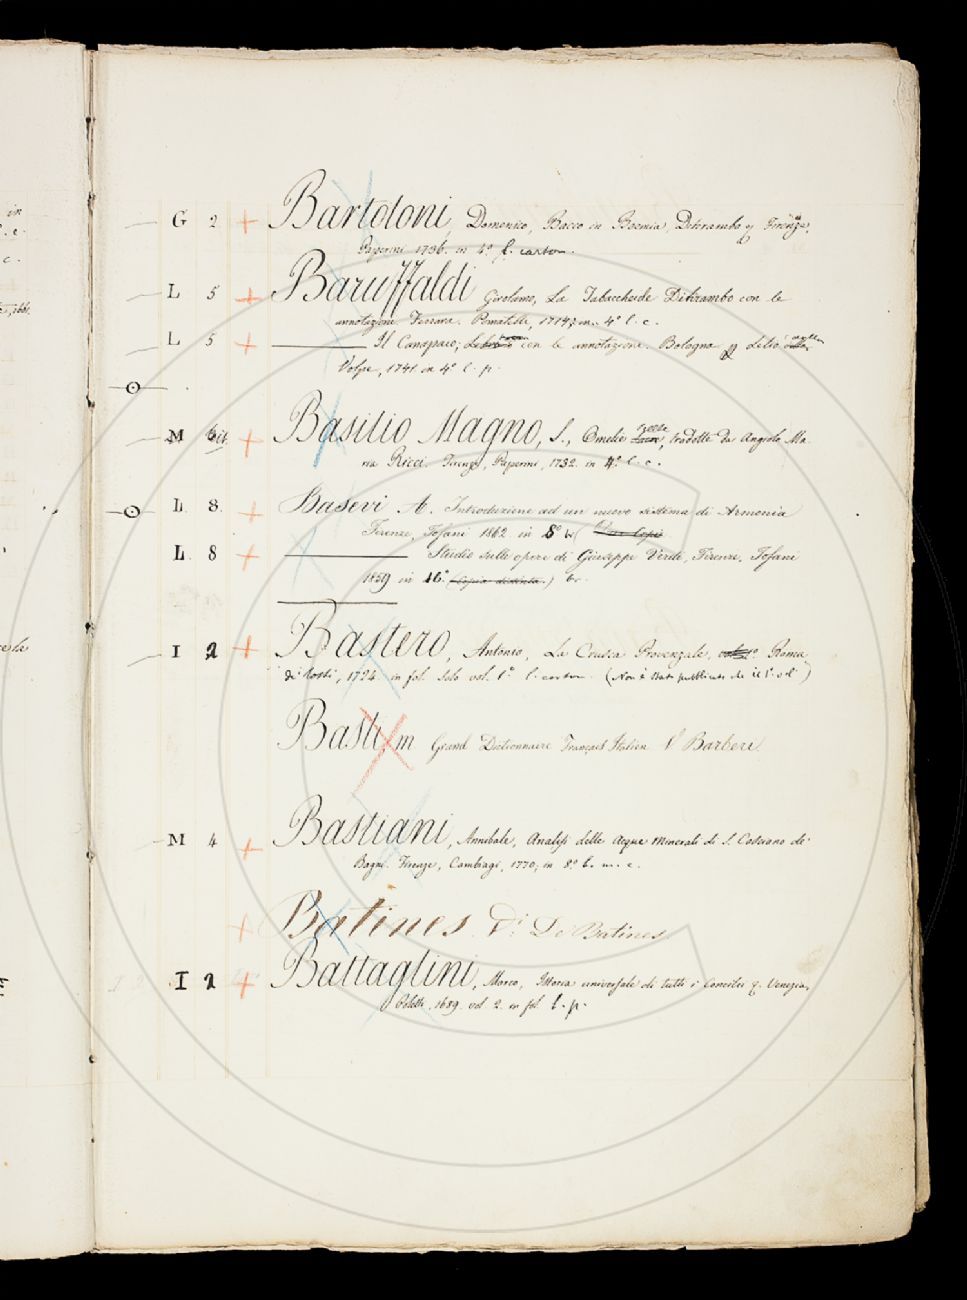 G 2 + Bartoloni, Domenico, Bacco in Boemia, Ditirambo &. Firenze,
Paperini 1736. in 4.º l. carton.
L 5 + Baruffaldi Girolamo, La Tabaccheide Ditirambo con le
annotazioni. Ferrara. Pomatelli, 1714, in 4.º l. c.
L 5 + Il Canapajo, con le annotazione. Bologna Lelio
Volpe, 1741. in 4.º l. p.
M + Basilio Magno, S., Omelie, tradotte da Angiola Ma
ria Ricci. Firenze, Paperini, 1732. in 4.º l. c.
L. 8. + Basevi A. Introduzione ad un nuovo sistema di Armonia
Firenze, Tofani 1862. in 8.º
L. 8 + Studio sulle opere di Giuseppe Verdi, Firenze, Tofani
1859 in 16.º (Copia distinta.) br.
I 2 + Bastero, Antonio, La Crusca Provenzale, Roma
de' Rossi, 1724. in fol. Solo vol. 1.º l. carton. (Non è stato pubblicato che il 1.º vol.)
Basti m Grand Dictionnaire Français Italien V. Barberi
M 4 + Bastiani, Annibale, Analisi delle Acque Minerali di S. Cassiano de'
Bagni. Firenze, Cambiagi, 1770, in 8.º b. m. c.
+ Batines. Vi. De Batines.
I 2 + Battaglini, Marco, Istoria universale di tutti i Concilii &. Venezia,
Poletti, 1689. vol. 2. in fol. l. p.